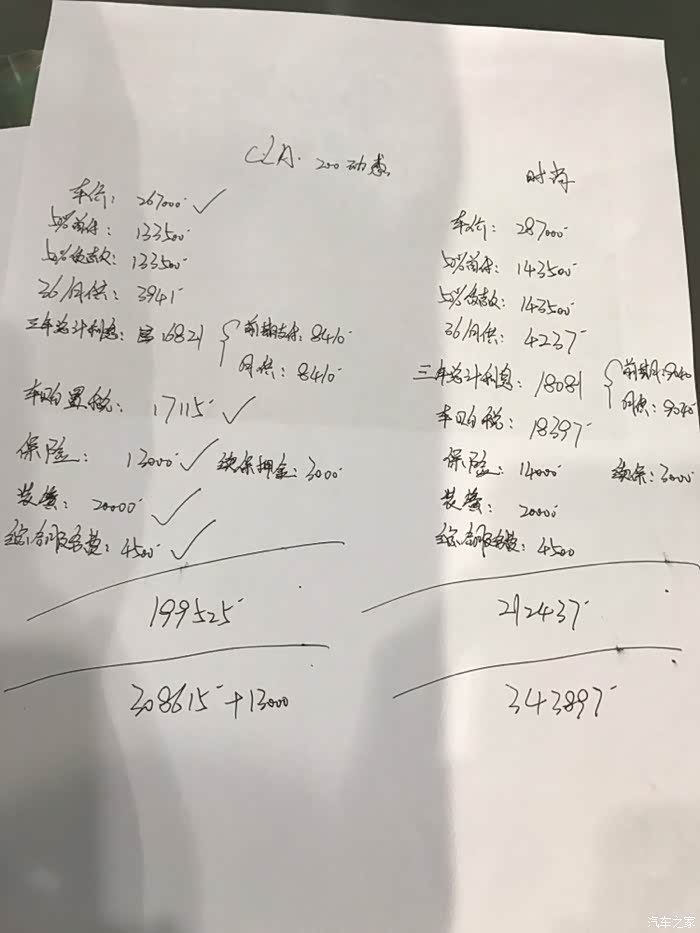 CLA. 200动感
车价: 267000 ✓
50%首付: 133500
50%贷款: 133500
36/月供: 3941
三年总计利息: 16821 { 前期支付: 8410
月供: 8410
车购置税: 17115 ✓
保险: 13000 ✓ 续保押金: 3000
装潢: 20000 ✓
综合服务费: 4500 ✓
199525
308615 + 13000
时尚
车价: 287000
50%首付: 143500
50%贷款: 143500
36/月供: 4237
三年总计利息: 18081 { 前期: 9040
月供: 9040
车购税: 18397
保险: 14000 续保: 3000
装潢: 20000
综合服务费: 4500
212437
343897
汽车之家